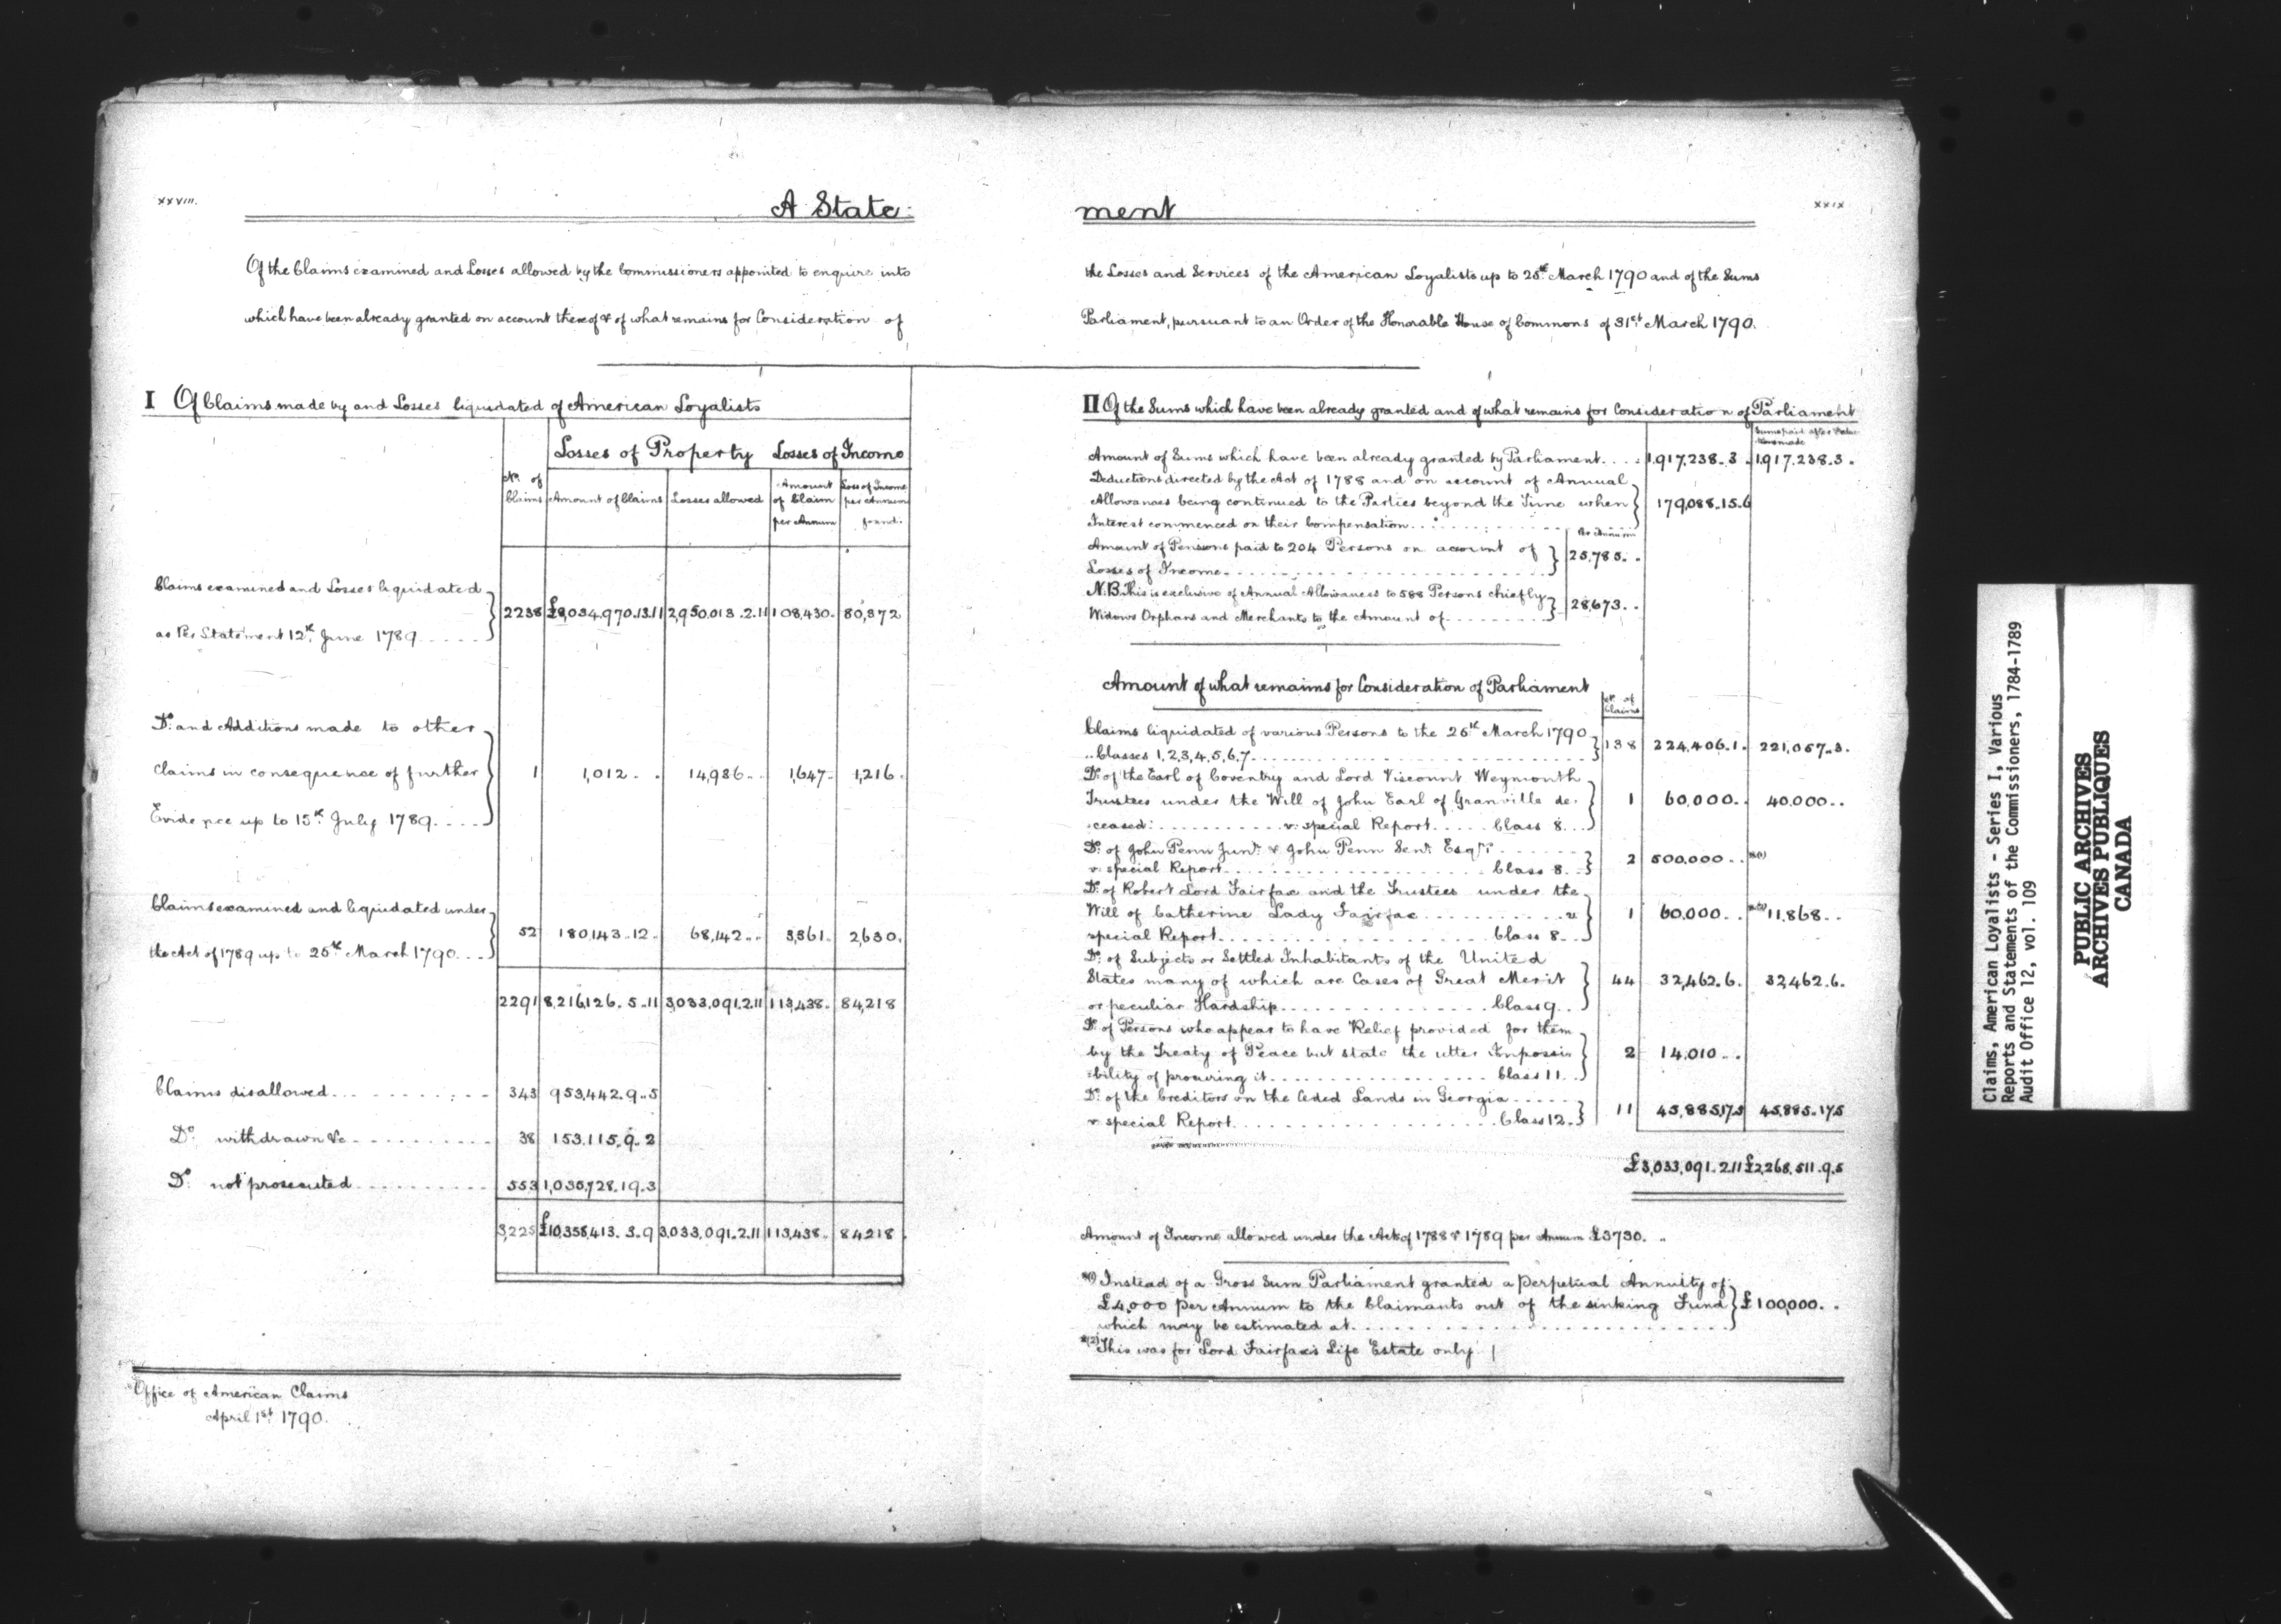 xxviii.
A State-
Of the Claims examined and Losses allowed by the Commissioners appointed to enquire into
which have been already granted on account thereof & of what remains for Consideration of
I Of Claims made by and Losses liquidated of American Loyalists
Losses of Property Losses of Income
No. of Claims Amount of Claims Losses allowed Amount of Claim per Annum Loss of Income per Annum found.
Claims examined and Losses liquidated
as Per Statement 12th June 1789 2238 £8,034,970.13.11 2,950,013.2.11 108,430. 80,372
Do. and Additions made to other
Claims in consequence of further 1 1,012 . . 14,936 . . 1,647. 1,216.
Evidence up to 15th July 1789.
Claims examined and liquidated under
the Act of 1789 up to 25th March 1790 52 180,143.12. 68,142 . . 3,361. 2,630.
2291 8,216,126.5.11 3,033,091.2.11 113,438. 84,218
Claims disallowed 343 953,442.9.5
Do. withdrawn &c 38 153,115.9.2
Do. not prosecuted 553 1,035,728.19.3
3,225 £10,358,413.3.9 3,033,091.2.11 113,438. 84218
Office of American Claims
April 1st 1790.
ment
xxix
the Losses and Services of the American Loyalists up to 25th March 1790 and of the Sums
Parliament, pursuant to an Order of the Honorable House of Commons of 31st March 1790.
II Of the Sums which have been already granted and of what remains for Consideration of Parliament
Sums paid after
made
Amount of Sums which have been already granted by Parliament 1,917,238.3. 1,917,238.3.
Deductions directed by the Act of 1788 and on account of Annual
Allowances being continued to the Parties beyond the Time when 179,088.15.6
Interest commenced on their Compensation
Per Annum
Amount of Pensions paid to 204 Persons on account of 25,785. .
Losses of Income
N.B. This is exclusive of Annual Allowances to 588 Persons chiefly 28,673. .
Widows Orphans and Merchants to the Amount of
Amount of what remains for Consideration of Parliament
No. of Claims
Claims liquidated of various Persons to the 25th March 1790 138 224,406.1. 221,057.3.
Classes 1,2,3,4,5,6,7
Do. of the Earl of Coventry and Lord Viscount Weymouth
Trustees under the Will of John Earl of Granville de- 1 60,000. . 40,000. .
ceased v. special Report Class 8
Do. of John Penn Junr. & John Penn Senr. Esqrs 2 500,000. . *(1)
v. special Report Class 8
Do. of Robert Lord Fairfax and the Trustees under the
Will of Catherine Lady Fairfax v 1 60,000. . *(2) 11,868. .
special Report Class 8
Do. of Subjects or Settled Inhabitants of the United
States many of which are Cases of Great Merit 44 32,462.6. 32,462.6.
or peculiar Hardship Class 9
Do. of Persons who appear to have Relief provided for them
by the Treaty of Peace but state the utter Impossi 2 14,010. .
bility of procuring it Class 11
Do. of the Creditors on the Ceded Lands in Georgia 11 45,885.17.5 45,885.17.5
v. special Report Class 12
£3,033,091.2.11 £2,268,511.9.5
Amount of Income allowed under the Acts of 1788 & 1789 per Annum £3730. ..
*(1) Instead of a Gross Sum Parliament granted a Perpetual Annuity of
£4,000 per Annum to the Claimants out of the sinking Fund £100,000. .
which may be estimated at
*(2) This was for Lord Fairfax's Life Estate only
Claims, American Loyalists - Series I, Various
Reports and Statements of the Commissioners, 1784-1789
Audit Office 12, vol. 109
PUBLIC ARCHIVES
ARCHIVES PUBLIQUES
CANADA